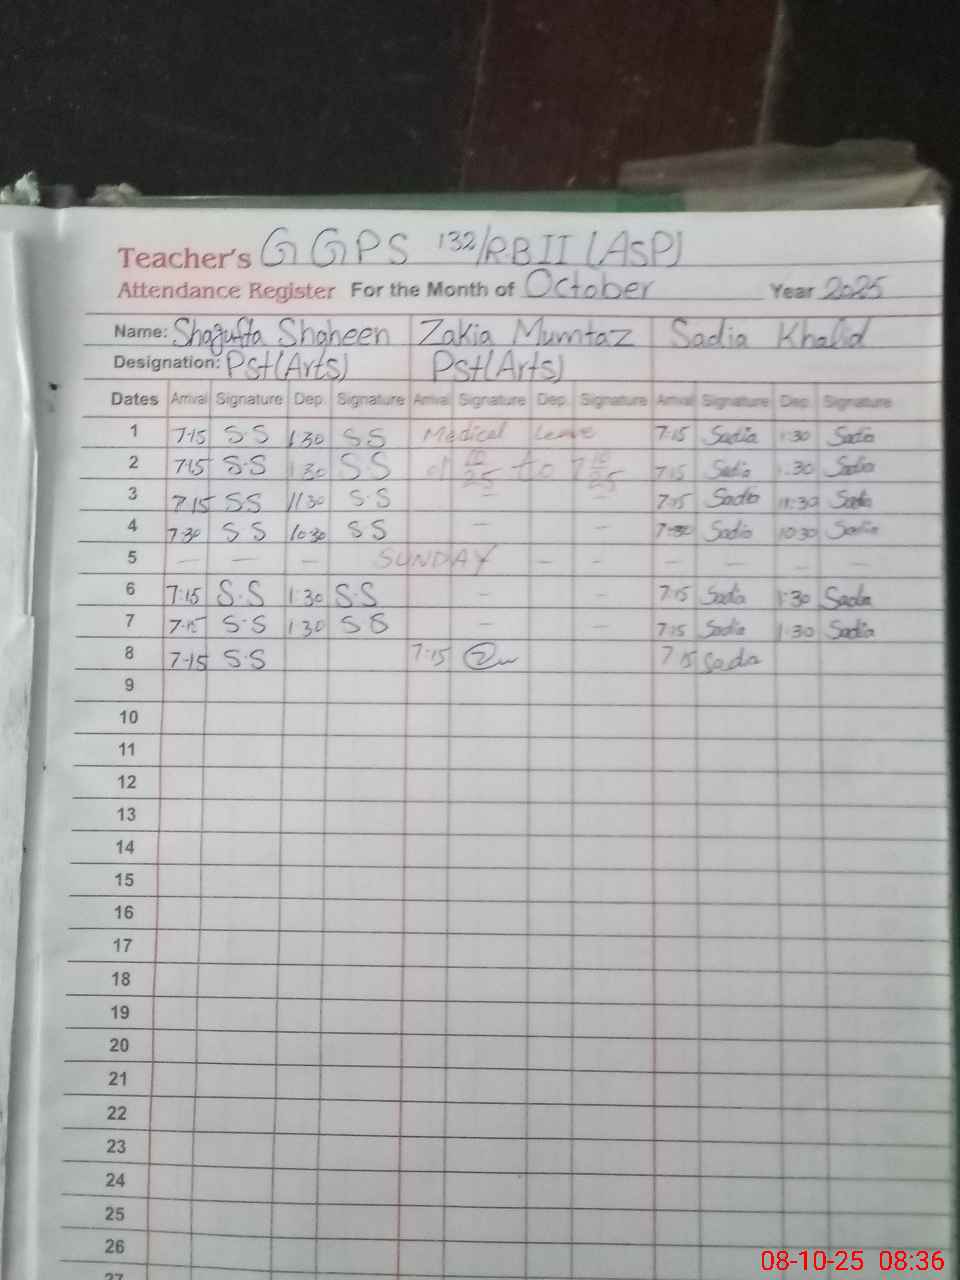 Teacher's GGPS 132/R.B II (ASP)
Attendance Register For the Month of October Year 2025
Name: Shagufta Shaheen Zakia Mumtaz Sadia Khalid
Designation: Pst(Arts) Pst(Arts)
Dates Arrival Signature Dep. Signature Arrival Signature Dep. Signature Arrival Signature Dep. Signature
1 7:15 S.S 1:30 S.S Medical Leave 7:15 Sadia 1:30 Sadia
2 7:15 S.S 1:30 S.S to 7:15 Sadia 1:30 Sadia
3 7:15 SS 11:30 S.S – – 7:15 Sadia 11:30 Sadia
4 7:30 S S 10:30 S S – – 7:30 Sadia 10:30 Sadia
5 – – – SUNDAY – – – – – –
6 7:15 S.S 1:30 S.S – – 7:15 Sadia 1:30 Sadia
7 7:15 S.S 1:30 S S – – 7:15 Sadia 1:30 Sadia
8 7:15 S.S 7:15 7:15 Sadia
9
10
11
12
13
14
15
16
17
18
19
20
21
22
23
24
25
26
27
08-10-25 08:36